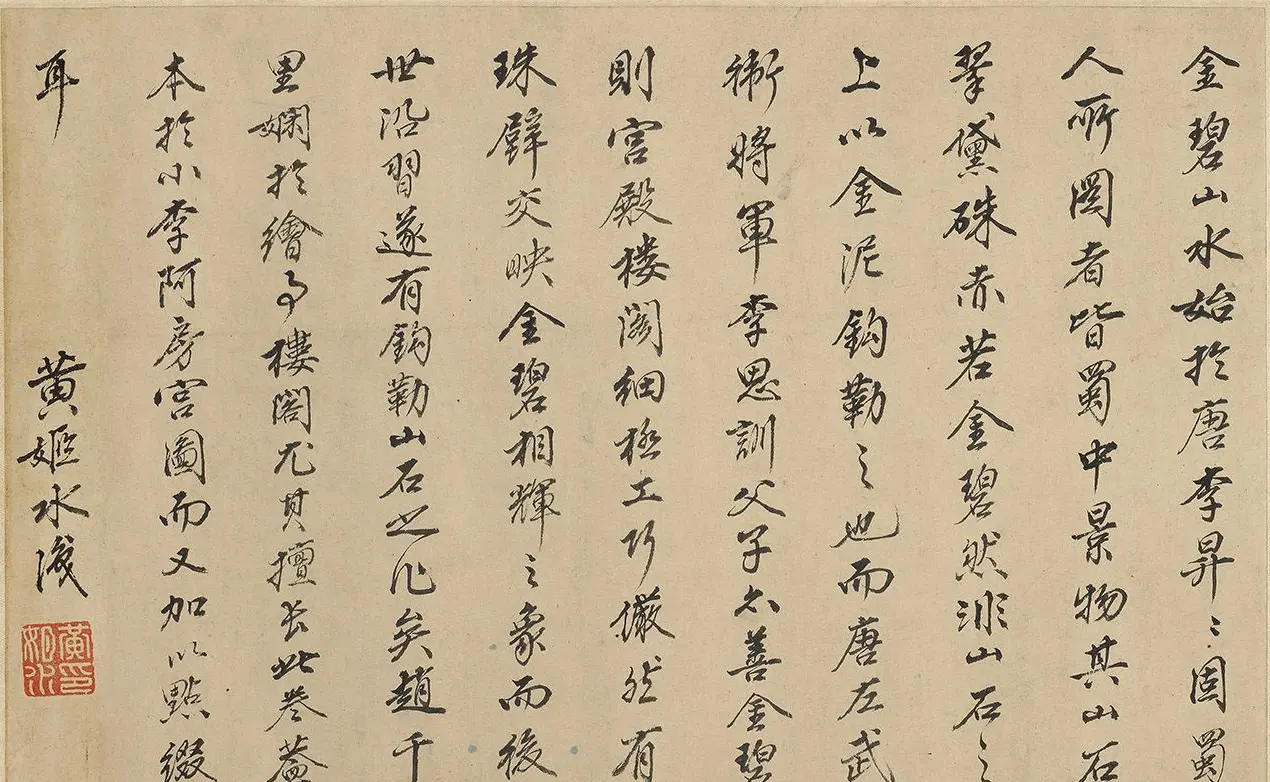 金碧山水始於唐李昇〻固蜀
人所圖者皆蜀中景物其山石
翠黛硃赤若金碧然非山石之
上以金泥鈎勒之也而唐左武
衛將軍李思訓父子亦善金碧
則宮殿楼閣細極工巧儼然有
珠璧交映金碧相輝之象而後
世沿習遂有鈎勒山石之作矣趙千
里嫻於繪事樓閣尤其擅長此卷蓋
本於小李阿房宮圖而又加以點綴
耳
黃姬水識
黃印姬水